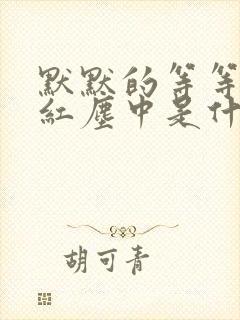 默默的等等
紅塵中是什
胡可青